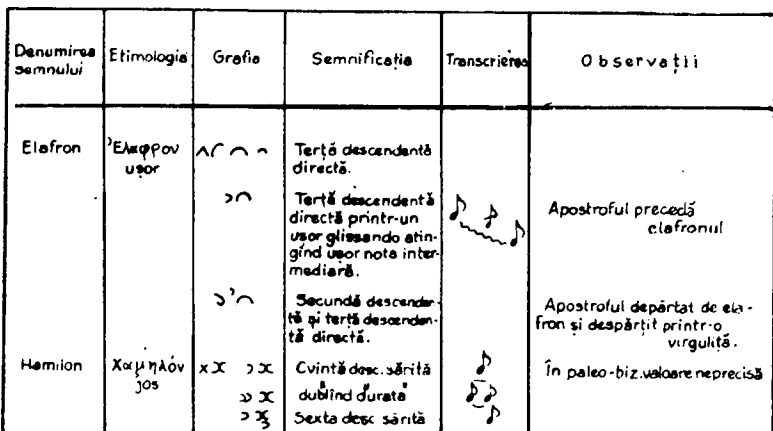 Denumirea semnului | Etimologia | Grafia | Semnificaţia | Transcrierea | Observaţii
Elafron | Ἐλαφρον uşor | Terţă descendentă directă.
Terţă descendentă directă printr-un uşor glissando atingînd uşor nota intermediară. | Apostroful precedă elafronul
Secundă descendentă şi terţă descendentă directă. | Apostroful depărtat de elafron şi despărţit printr-o virguliţă.
Hamilon | Χαμηλόν jos | Cvintă desc. sărită | În paleo-biz. valoare neprecisă
dublînd durata
Sexta desc sărită